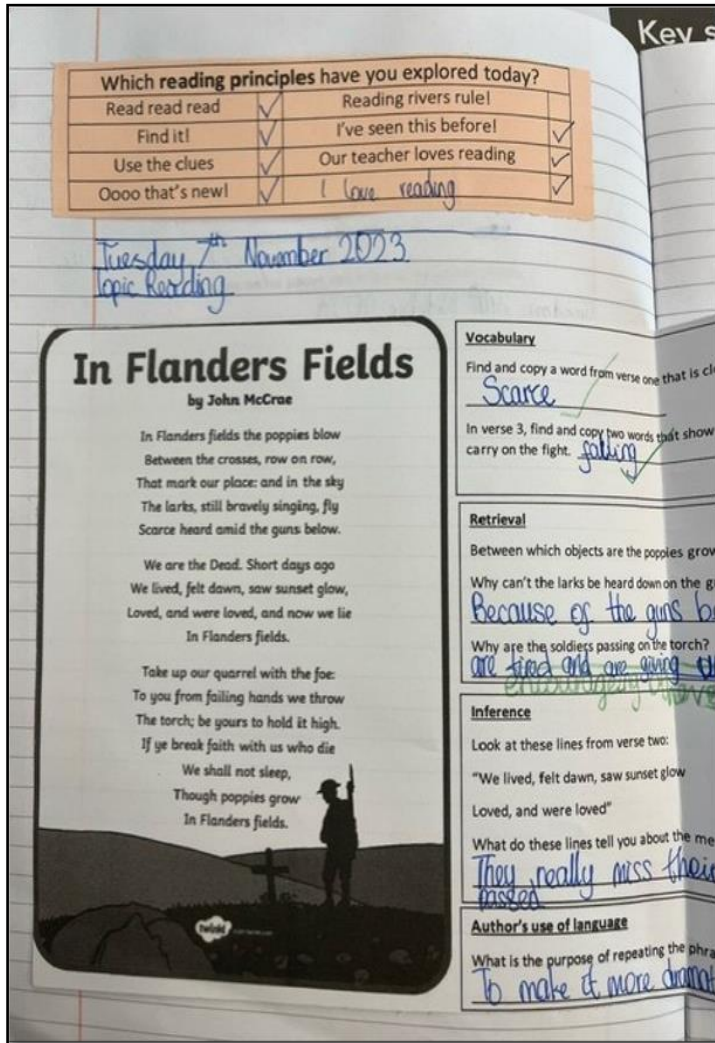 Key s
Which reading principles have you explored today?
Read read read ✓ Reading rivers rule!
Find it! ✓ I've seen this before! ✓
Use the clues ✓ Our teacher loves reading ✓
Oooo that's new! ✓ I love reading ✓
Tuesday 7th November 2023
Topic Reading
In Flanders Fields
by John McCrae
In Flanders fields the poppies blow
Between the crosses, row on row,
That mark our place: and in the sky
The larks, still bravely singing, fly
Scarce heard amid the guns below.
We are the Dead. Short days ago
We lived, felt dawn, saw sunset glow,
Loved, and were loved, and now we lie
In Flanders fields.
Take up our quarrel with the foe:
To you from failing hands we throw
The torch; be yours to hold it high.
If ye break faith with us who die
We shall not sleep,
Though poppies grow
In Flanders fields.
twinkl
Vocabulary
Find and copy a word from verse one that is cl
Scarce
In verse 3, find and copy two words that show
carry on the fight. failing
Retrieval
Between which objects are the poppies grow
Why can't the larks be heard down on the g
Because of the guns b
Why are the soldiers passing on the torch?
are tired and are giving u
Inference
Look at these lines from verse two:
"We lived, felt dawn, saw sunset glow
Loved, and were loved"
What do these lines tell you about the me
They really miss their
passed
Author's use of language
What is the purpose of repeating the phra
To make it more dramat